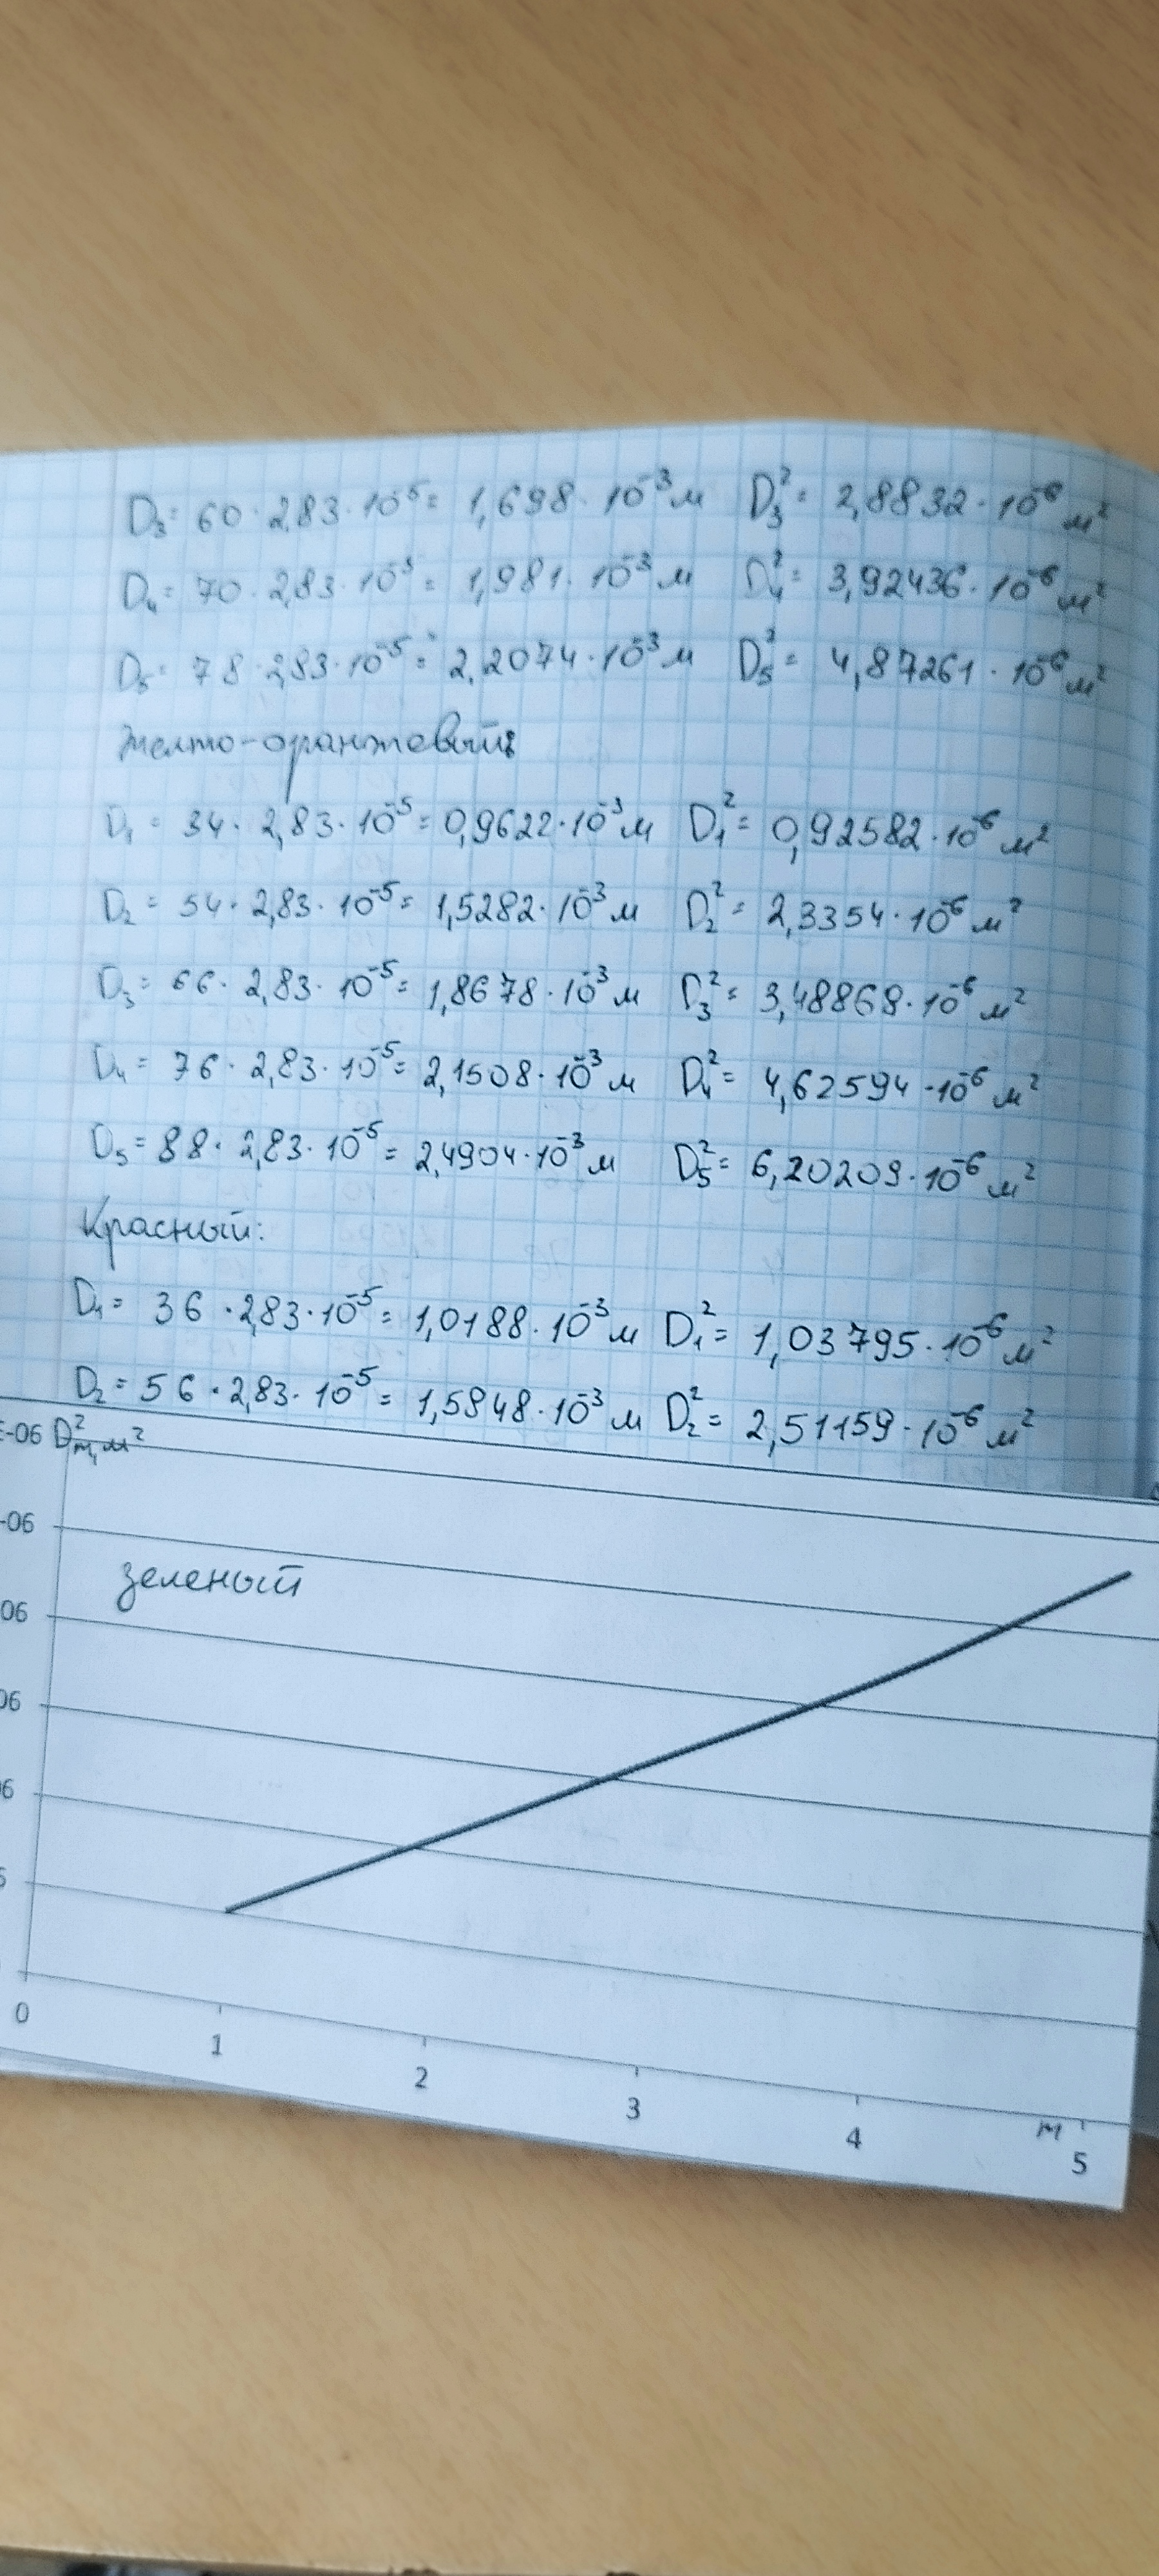 D₃ = 60 · 2,83 · 10⁻⁵ = 1,698 · 10⁻³ м D₃² = 2,8832 · 10⁻⁶ м²
D₄ = 70 · 2,83 · 10⁻⁵ = 1,981 · 10⁻³ м D₄² = 3,92436 · 10⁻⁶ м²
D₅ = 78 · 2,83 · 10⁻⁵ = 2,2074 · 10⁻³ м D₅² = 4,87261 · 10⁻⁶ м²
Желто-оранжевый:
D₁ = 34 · 2,83 · 10⁻⁵ = 0,9622 · 10⁻³ м D₁² = 0,92582 · 10⁻⁶ м²
D₂ = 54 · 2,83 · 10⁻⁵ = 1,5282 · 10⁻³ м D₂² = 2,3354 · 10⁻⁶ м²
D₃ = 66 · 2,83 · 10⁻⁵ = 1,8678 · 10⁻³ м D₃² = 3,48868 · 10⁻⁶ м²
D₄ = 76 · 2,83 · 10⁻⁵ = 2,1508 · 10⁻³ м D₄² = 4,62594 · 10⁻⁶ м²
D₅ = 88 · 2,83 · 10⁻⁵ = 2,4904 · 10⁻³ м D₅² = 6,20209 · 10⁻⁶ м²
Красный:
D₁ = 36 · 2,83 · 10⁻⁵ = 1,0188 · 10⁻³ м D₁² = 1,03795 · 10⁻⁶ м²
D₂ = 56 · 2,83 · 10⁻⁵ = 1,5848 · 10⁻³ м D₂² = 2,51159 · 10⁻⁶ м²
E-06 Dₘ², м²
-06
зеленый
06
06
6
0
1
2
3
4
м
5